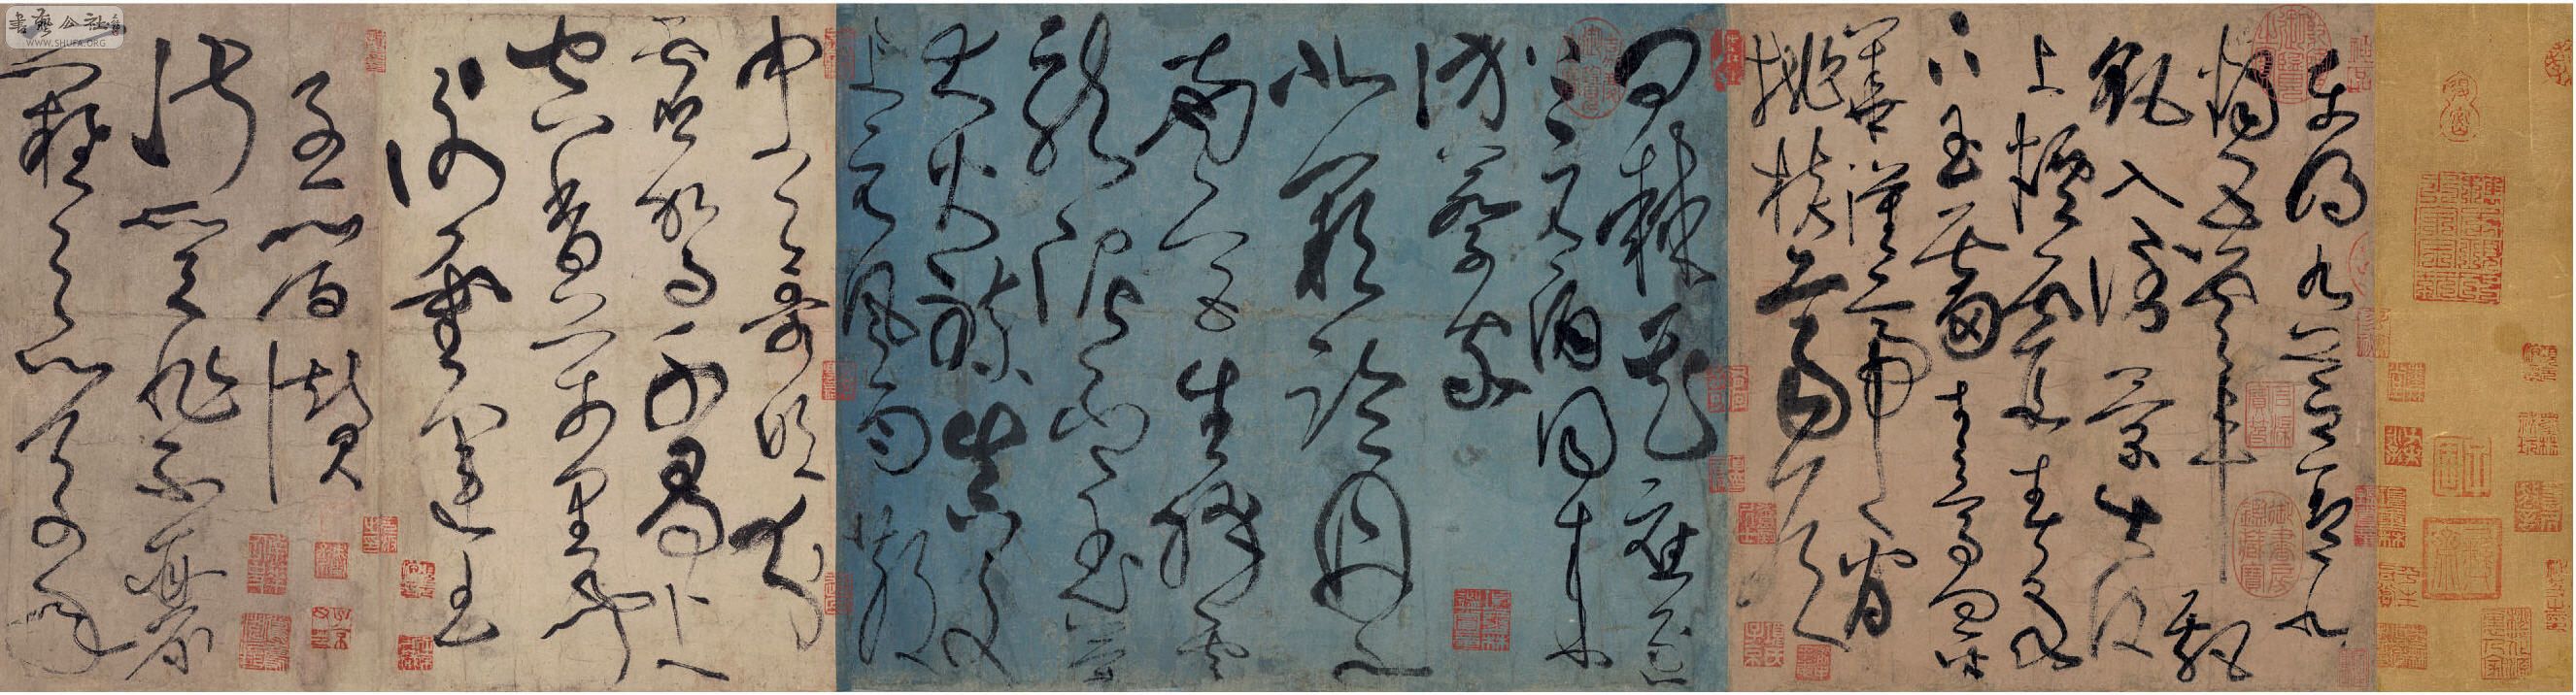 東明九芝蓋北
燭五雲車飄
飖入倒景出没
上烟霞春泉
下玉霤青鳥向金
華漢帝看
桃核齊侯
問棘花應逐
上元酒同来
訪蔡家
北闕臨丹水
南宮生絳雲
龍泥印玉簡
大火煉真文
上元風雨散
中天哥吹分
虚駕千尋上
空香萬里聞
謝靈運王
子晉讚
淑質非不麗
難之以萬年
書藝公社
WWW.SHUFA.ORG